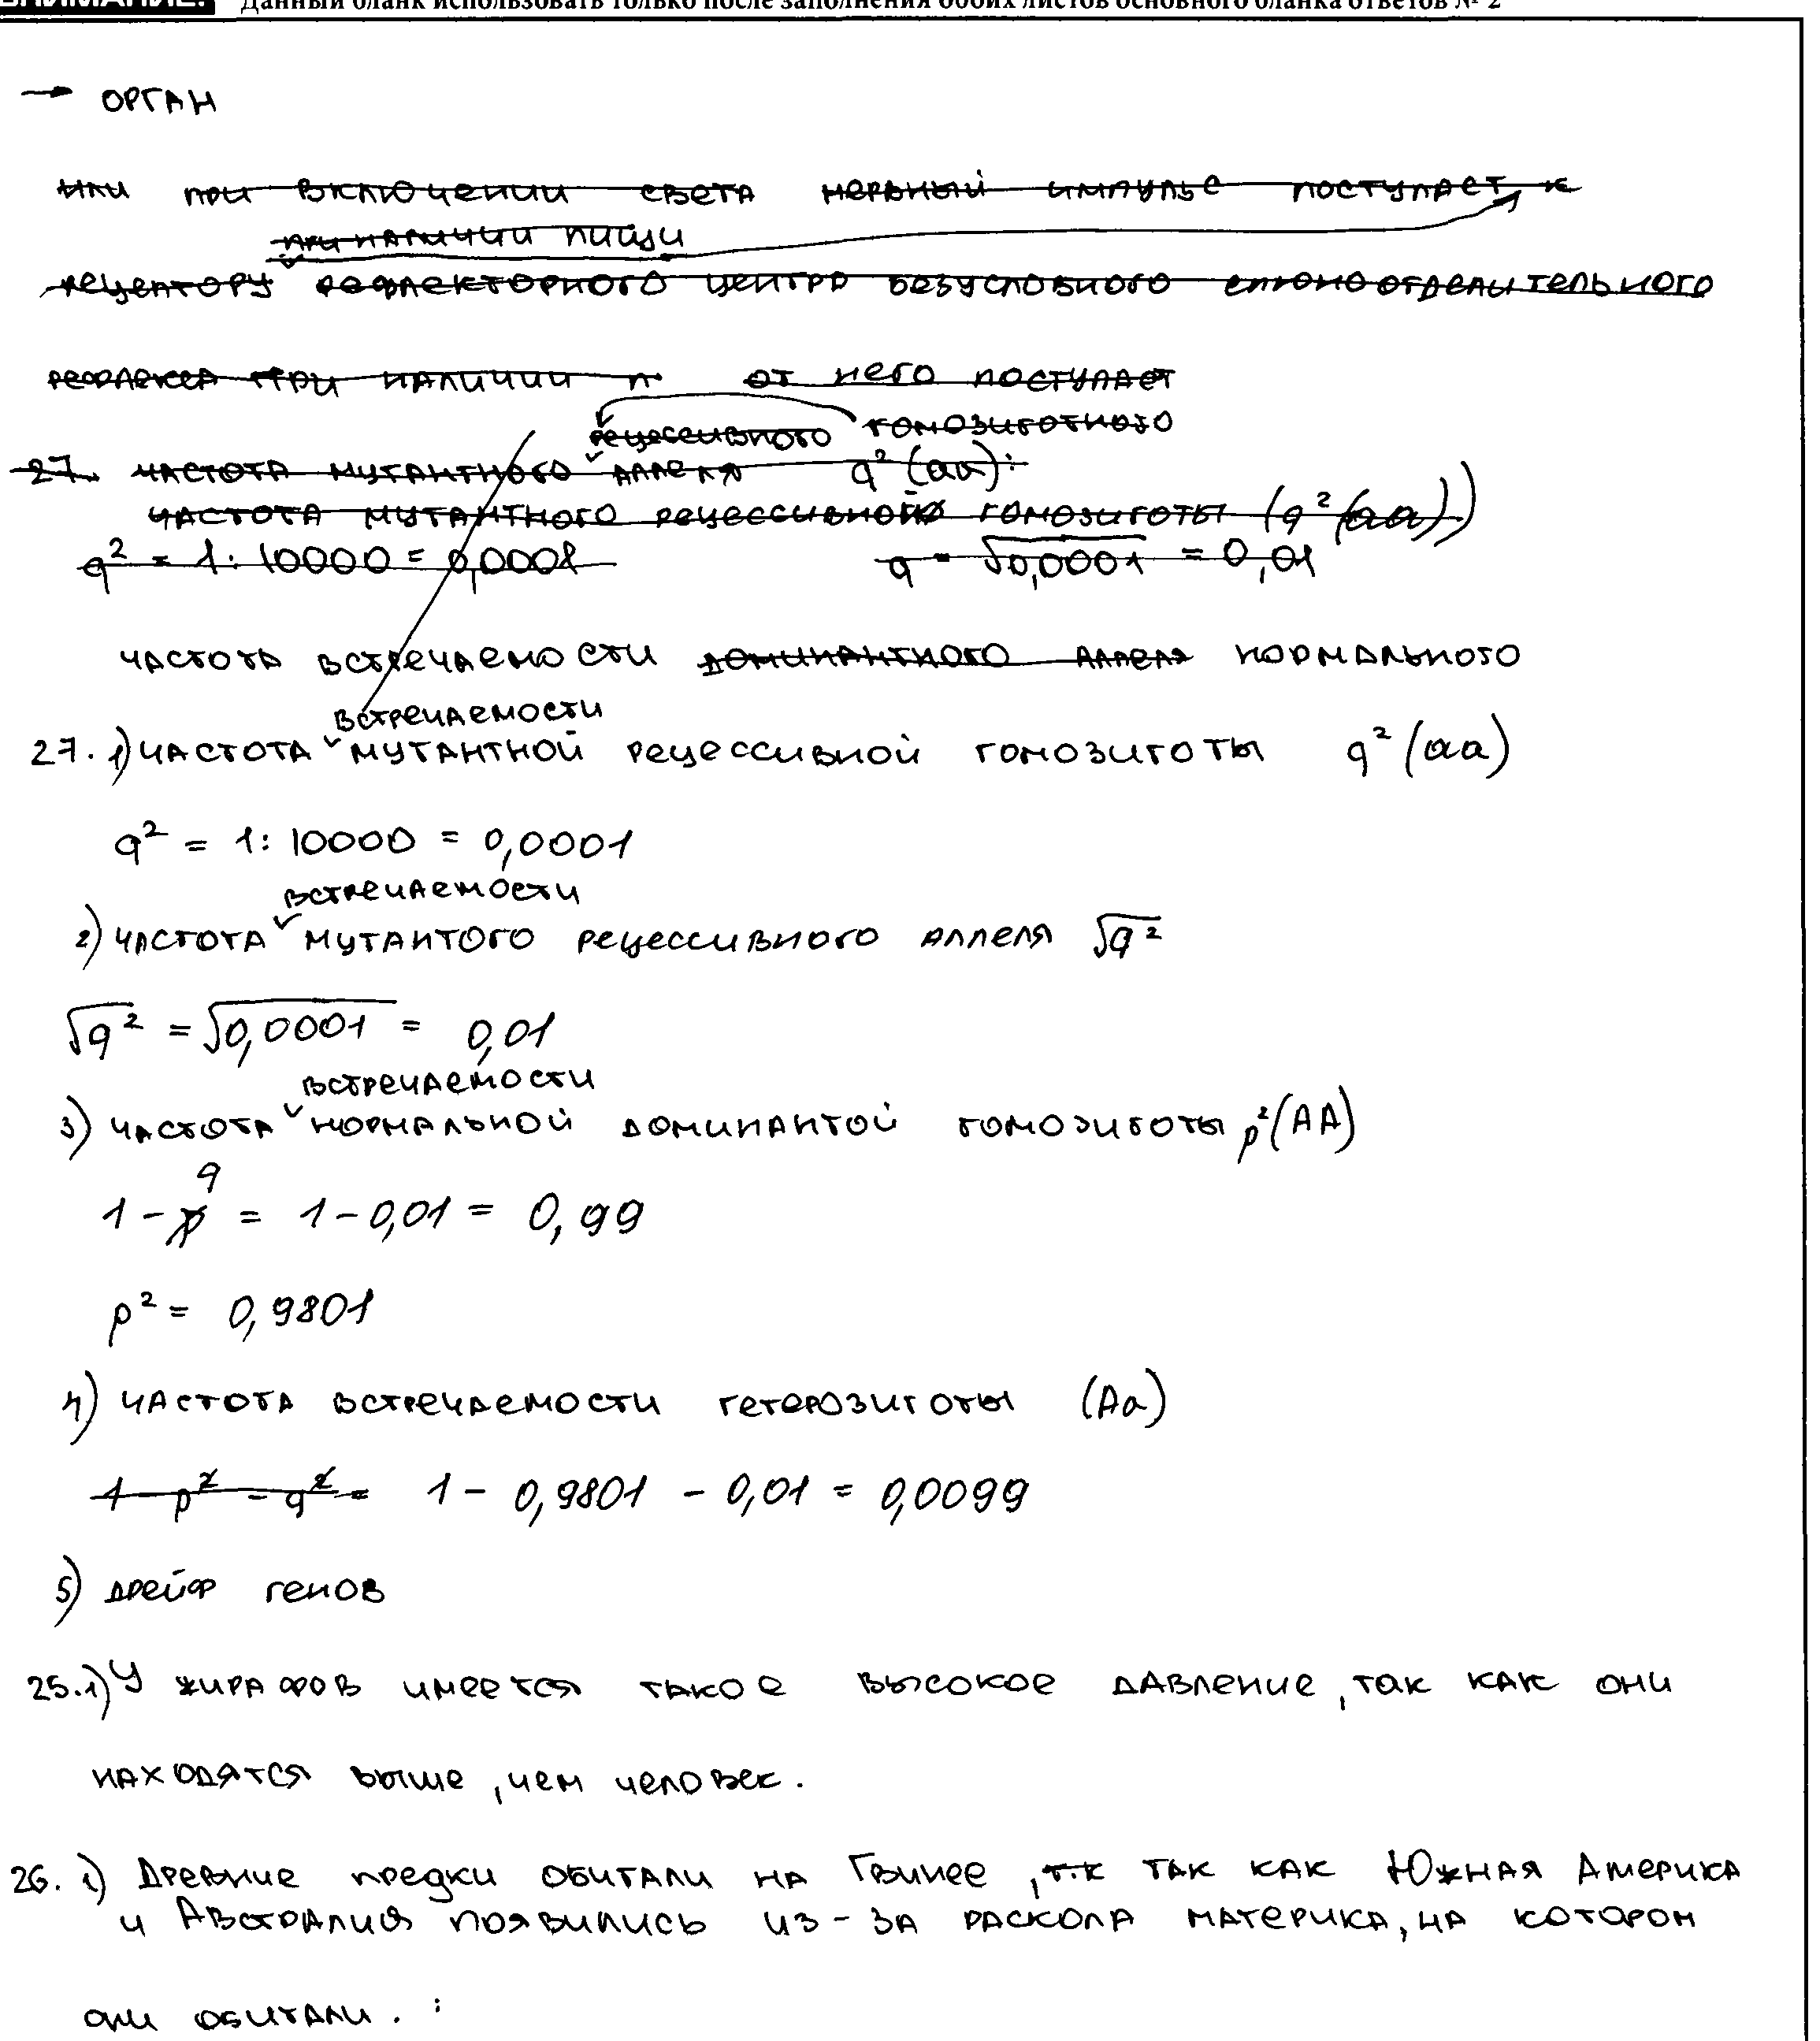 ВНИМАНИЕ! Данный бланк использовать только после заполнения обоих листов основного бланка ответов № 2
→ орган
или при включении света нервный импульс поступает к
при наличии пищи
рецептору рефлекторного центра безусловного слюноотделительного
рефлекса при наличии п от него поступает
рецессивного гомозиготного
27. частота мутантного аллеля q² (aa):
частота мутантного рецессивной гомозиготы (q² (aa))
q² = 1 : 10000 = 0,0001 q = √0,0001 = 0,01
частота встречаемости доминантного аллеля нормального
встречаемости
27. 1) частота мутантной рецессивной гомозиготы q² (aa)
q² = 1 : 10000 = 0,0001
встречаемости
2) частота мутантого рецессивного аллеля √q²
√q² = √0,0001 = 0,01
встречаемости
3) частота нормальной доминантой гомозиготы p² (AA)
q
1 - p = 1 - 0,01 = 0,99
p² = 0,9801
4) частота встречаемости гетерозиготы (Aa)
1 - p² - q² = 1 - 0,9801 - 0,01 = 0,0099
5) дрейф генов
25. 1) У жирафов имеется такое высокое давление, так как они
находятся выше, чем человек.
26. 1) Древние предки обитали на Гвинее, т.к так как Южная Америка
и Австралия появились из-за раскола материка, на котором
они обитали. :